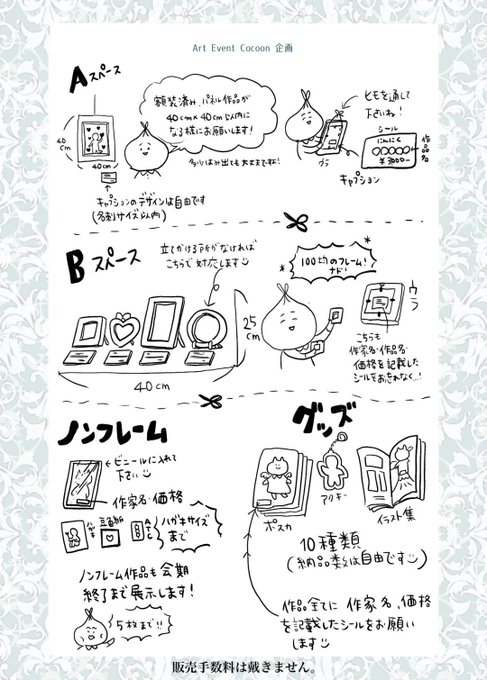 Art Event Cocoon 企画
Aスペース
額装済み、パネル作品が
40cm×40cm以内に
なる様にお願いします!
多少はみ出ても大丈夫です!
40cm
40cm
キャプションのデザインは自由です
(名刺サイズ以内)
ヒモを通して
下さいね!
ウラ
シール
にんにく
○○○○○○
¥3000-
作品名
キャプション
Bスペース
立てかける所がなければ
こちらで対応します
25cm
40cm
100均のフレーム!
ナド!
ウラ
こちらも
作家名・作品名・
価格を記載した
シールをお忘れなく…!
ノンフレーム
ビニールに入れて
下さい
作家名・価格
ハガキ
豆色紙
ATC
ハガキサイズ
まで
ノンフレーム作品も会期
終了まで展示します!
5枚まで!!
グッズ
ポスカ
アクキー
イラスト集
10種類
(納品数は自由です)
作品全てに 作家名、価格
を記載したシールをお願い
します
販売手数料は戴きません。